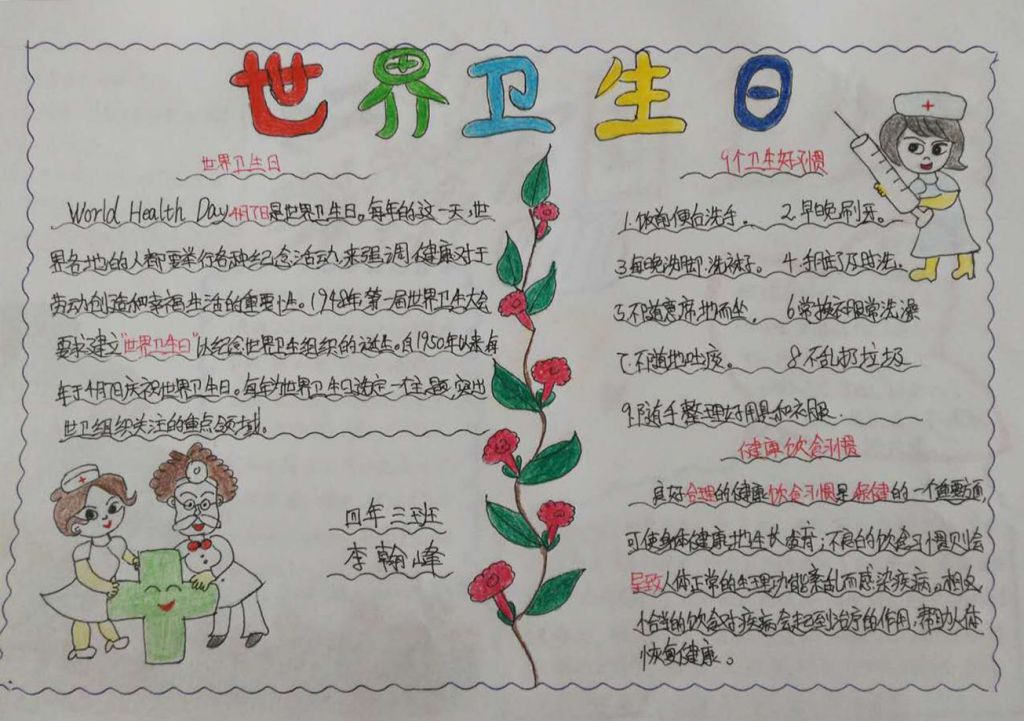 世界卫生日
世界卫生日
World Health Day 4月7日是世界卫生日。每年的这一天,世
界各地的人都要举行各种纪念活动,来强调健康对于
劳动创造和幸福生活的重要性。1948年,第一届世界卫生大会
要求建立"世界卫生日"以纪念世界卫生组织的诞生。自1950年以来,每
年于4月7日庆祝世界卫生日。每年为世界卫生日选定一个主题,突出
世卫组织关注的重点领域。
四年三班
李翰峰
9个卫生好习惯
1.饭前便后洗手。 2.早晚刷牙。
3.每晚洗脚、洗袜子。 4.手脏了及时洗。
5.不随意席地而坐。 6.常换衣服常洗澡
7.不随地吐痰。 8.不乱扔垃圾
9.随手整理好用具和衣服.
健康饮食习惯
良好合理的健康饮食习惯是保健的一个重要方面,
可使身体健康地生长、发育;不良的饮食习惯则会
导致人体正常的生理功能紊乱而感染疾病。相反,
恰当的饮食对疾病会起到治疗的作用,帮助人体
恢复健康。